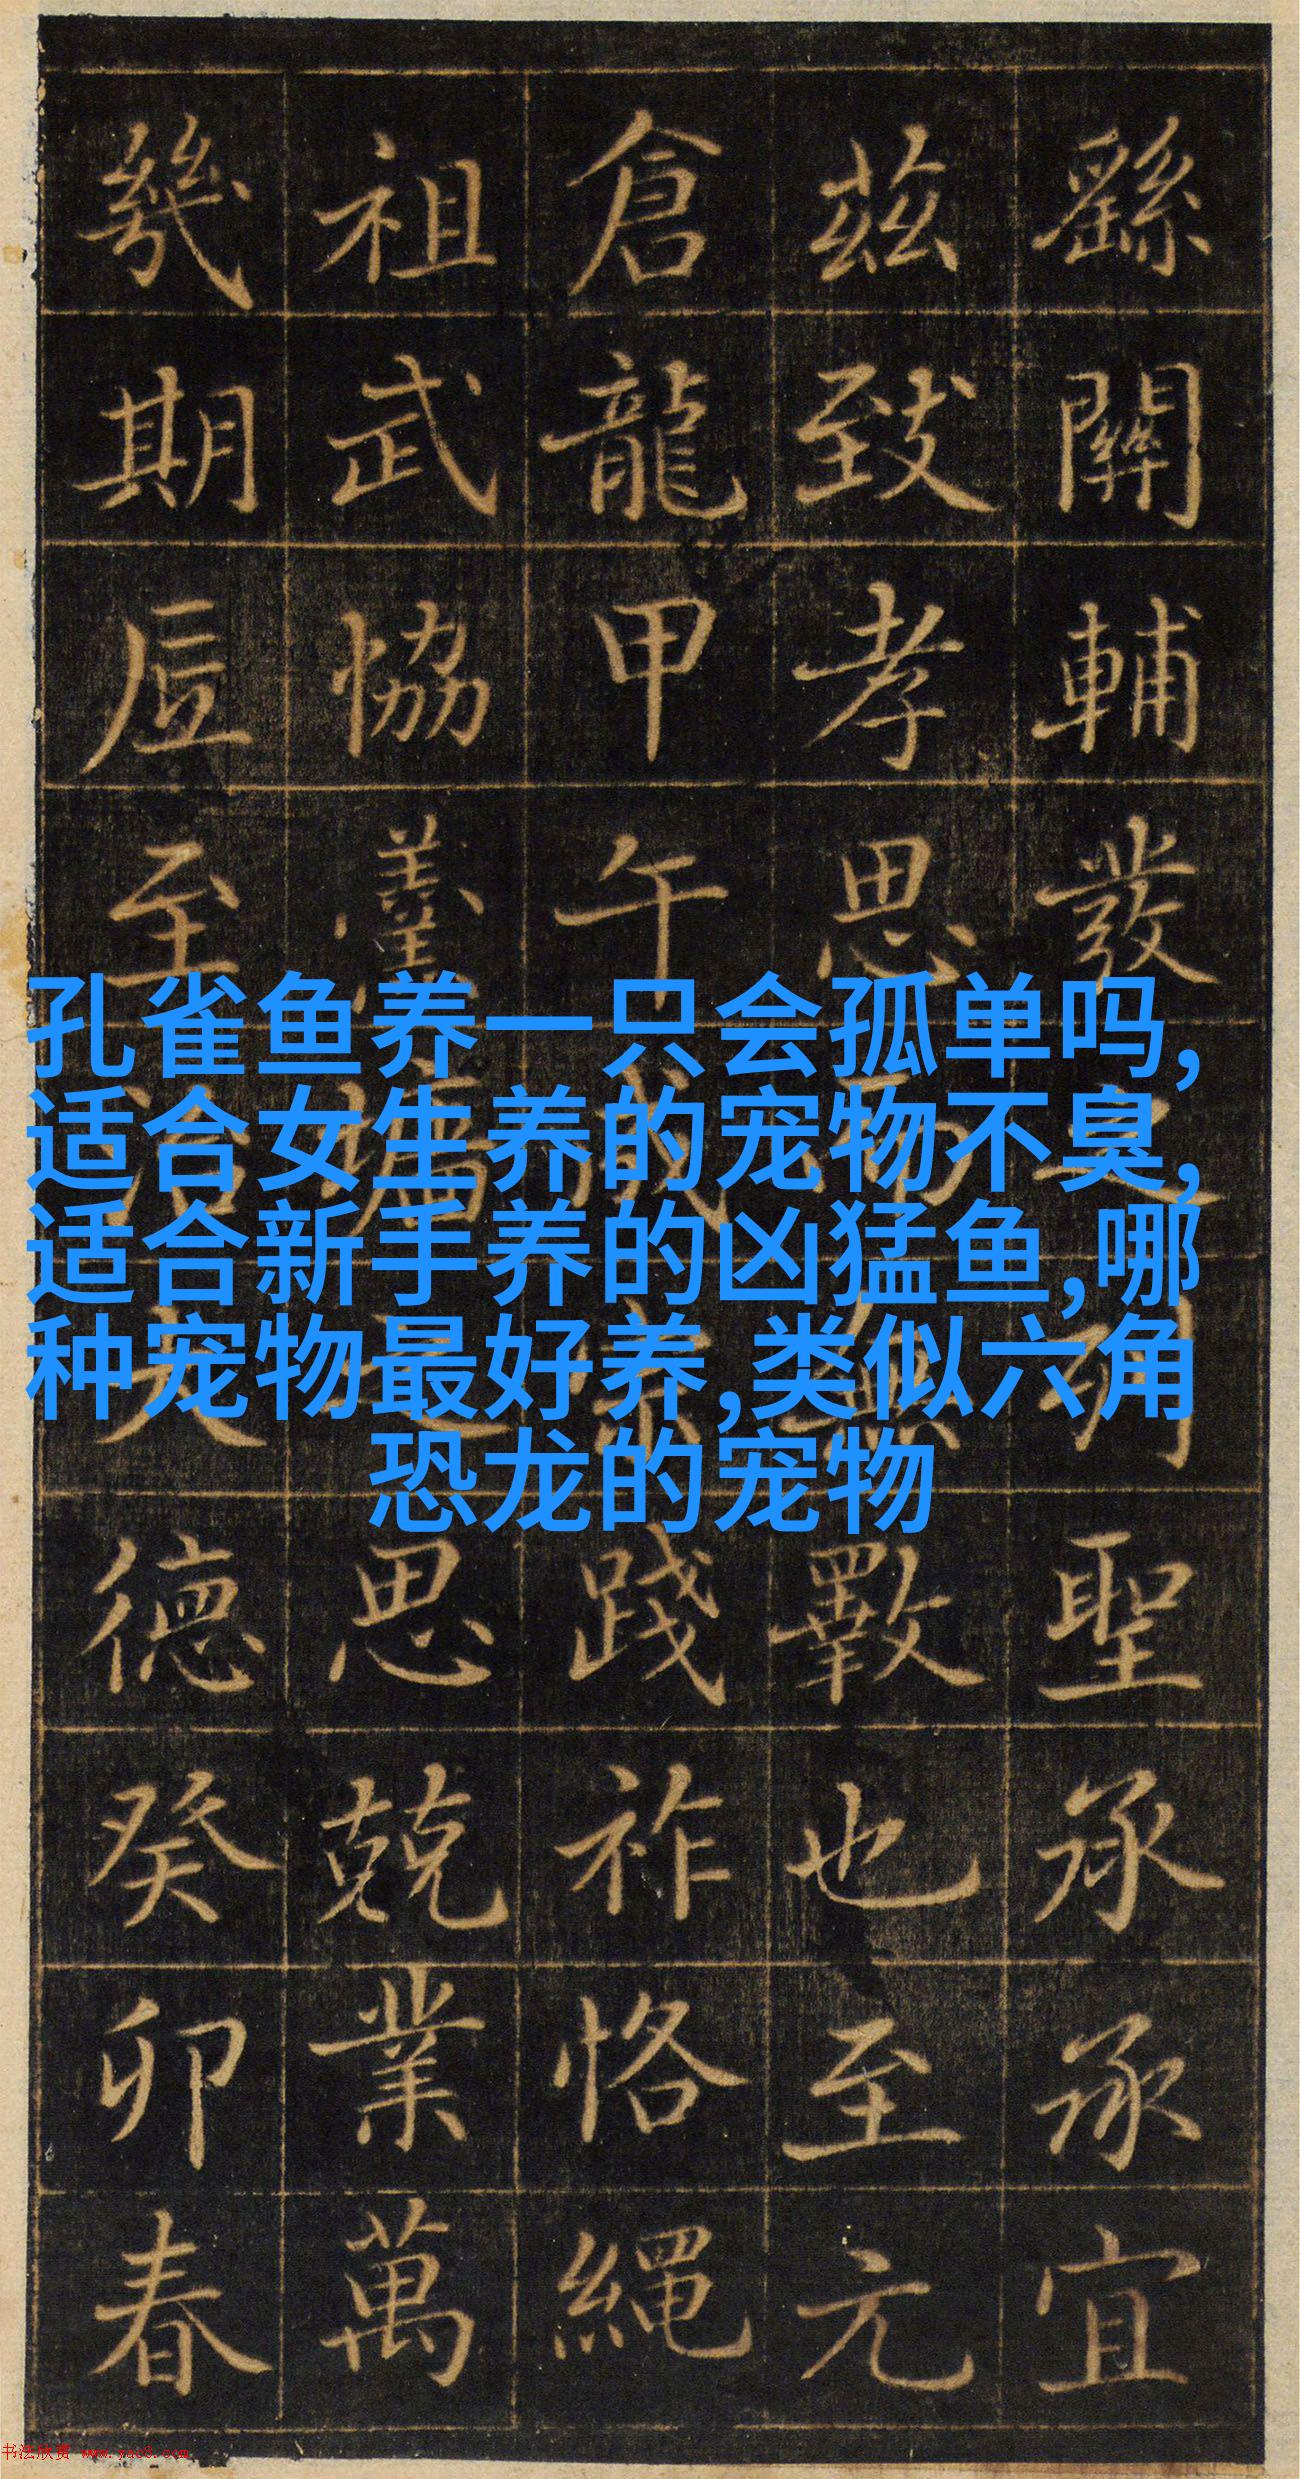 繇關輔發之列聖承承宜
茲致孝思而無斁也至元
倉龍甲午成宗踐祚恪繩
祖武協羹墻之思兢業萬
幾期至治大德癸卯春
孔雀鱼养一只会孤单吗,
适合女生养的宠物不臭,
适合新手养的凶猛鱼,哪
种宠物最好养,类似六角
恐龙的宠物
书法欣赏 www.yac8.com